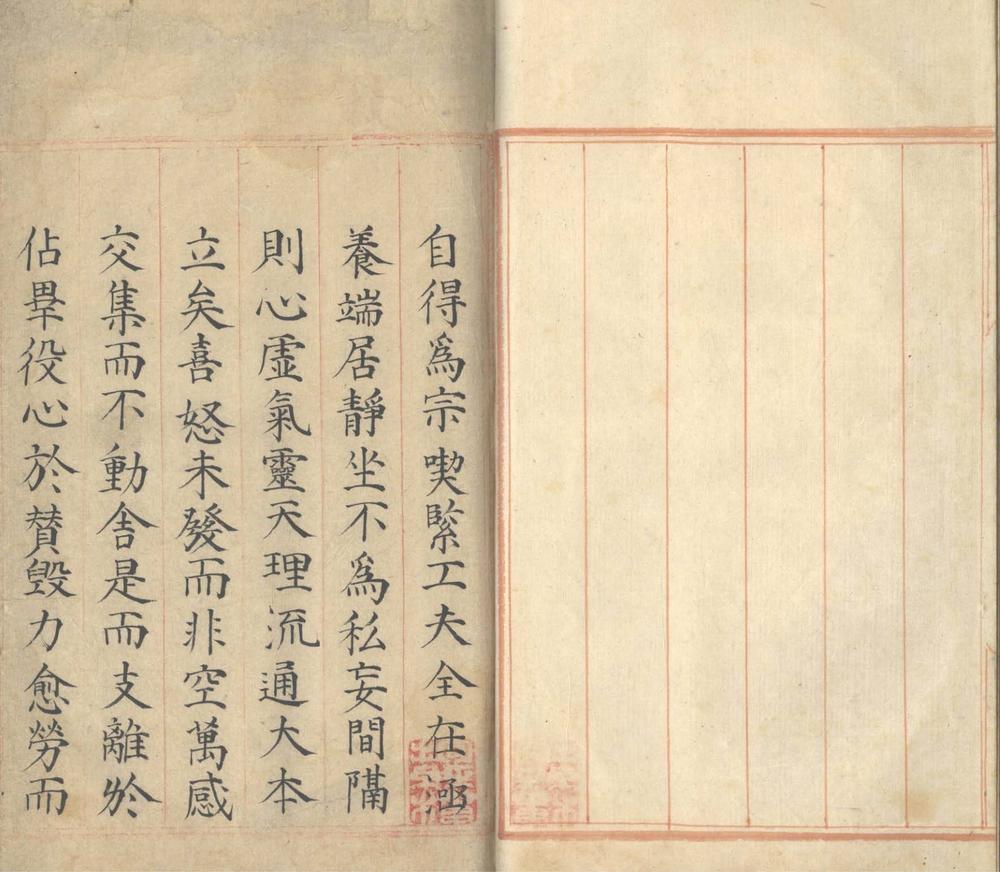 自得爲宗喫緊工夫全在涵
養端居靜坐不爲私妄間隔
則心虛氣靈天理流通大本
立矣喜怒未發而非空萬感
交集而不動舍是而支離於
佔畢役心於贊毀力愈勞而